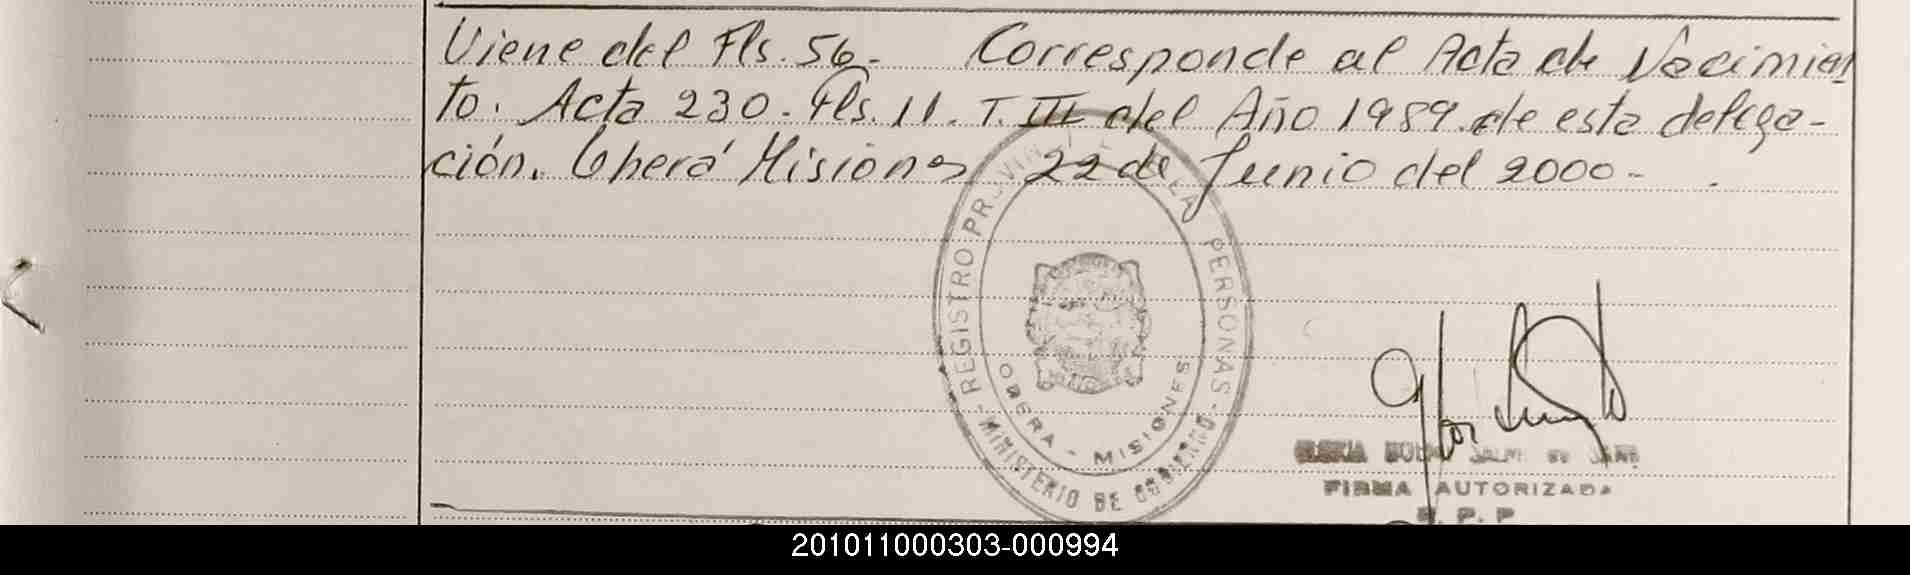 Viene del Fls. 56. Corresponde al Acta de Nacimien
to. Acta 230. Fls. 11. T. III del Año 1989. de esta delega-
ción. Oberá Misiones 22 de Junio del 2000 -.
- REGISTRO PROVINCIAL DE LAS PERSONAS -
OBERA - MISIONES
MINISTERIO DE GOBIERNO
FIRMA AUTORIZADA
R. P. P
201011000303-000994